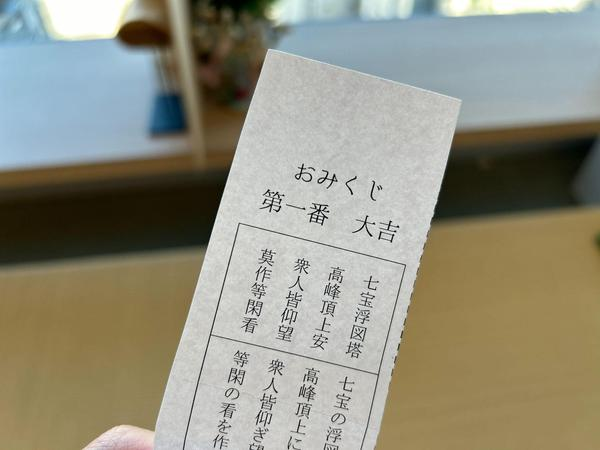 おみくじ
第一番　大吉
七宝浮図塔
高峰頂上安
衆人皆仰望
莫作等閑看
七宝の浮図
高峰頂上に
衆人皆仰ぎ望
等閑の看を作